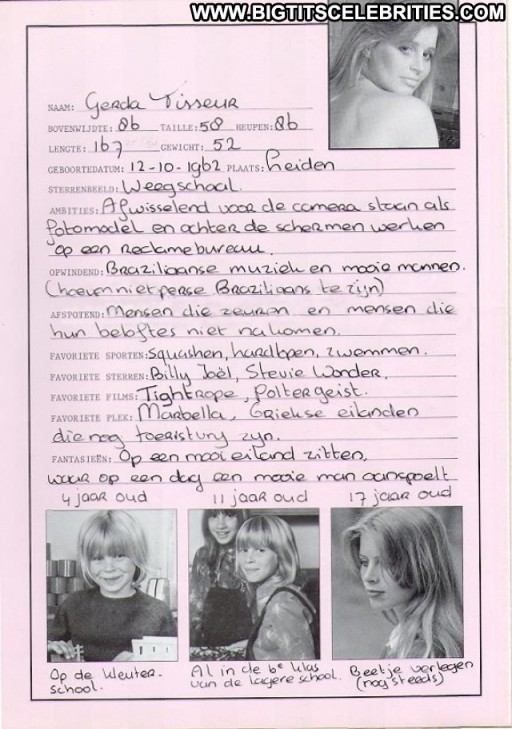 WWW.BIGTITSCELEBRITIES.COM
NAAM: Gerda Tisseur
BOVENWIJDTE: 86 TAILLE: 58 HEUPEN: 86
LENGTE: 167 GEWICHT: 52
GEBOORTEDATUM: 12-10-1962 PLAATS: Leiden
STERRENBEELD: Weegschaal.
AMBITIES: Afwisselend voor de camera staan als
fotomodel en achter de schermen werken
op een reclamebureau.
OPWINDEND: Braziliaanse muziek en mooie mannen.
(hoeven niet perse Braziliaans te zijn)
AFSTOTEND: Mensen die zeuren en mensen die
hun beloftes niet nakomen.
FAVORIETE SPORTEN: Squashen, hardlopen, zwemmen.
FAVORIETE STERREN: Billy Joël, Stevie Wonder.
FAVORIETE FILMS: Tightrope, Poltergeist.
FAVORIETE PLEK: Marbella, Griekse eilanden
die nog toeristvry zyn.
FANTASIEËN: Op een mooi eiland zitten,
waar op een dag een mooie man aanspoelt
4 jaar oud 11 jaar oud 17 jaar oud
Op de kleuter-
school.
Al in de 6e klas
van de lagere school.
Beetje verlegen
(nog steeds)